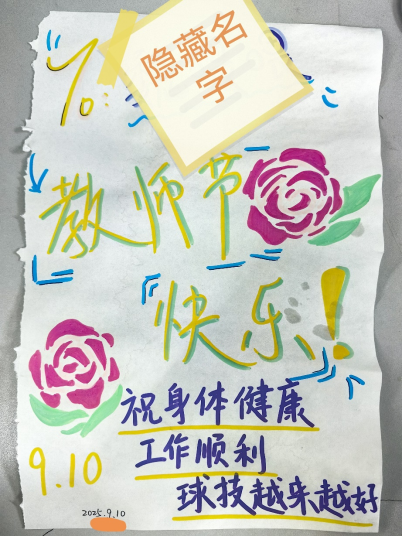 To:
隐藏名
字
教师节
快乐!
祝身体健康
工作顺利
球技越来越好
9.10
2025.9.10